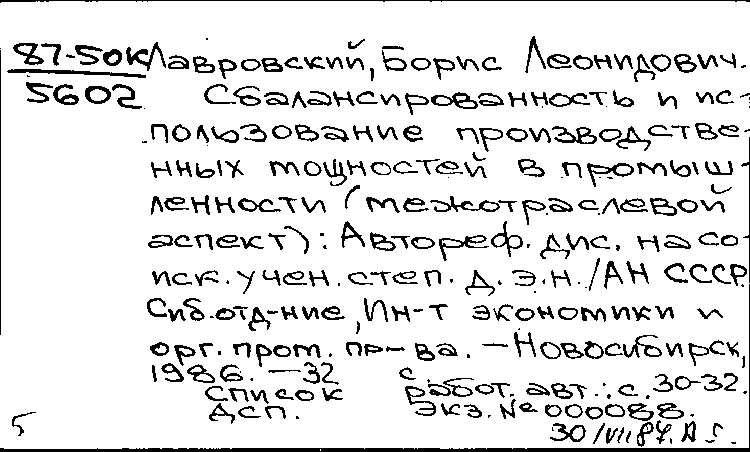 87-50к Лавровский, Борис Леонидович.
5602 Сбалансированность и ис-
пользование производстве-
нных мощностей в промыш-
ленности (межотраслевой
аспект): Автореф. дис. на со-
иск. учен. степ. д. э. н. /АН СССР.
Сиб. отд-ние, Ин-т экономики и
орг. пром. пр-ва. — Новосибирск,
1986. — 32 с.
Список работ. авт.: с. 30-32.
ДСП. Экз. № 000088.
5 30/VII 87.